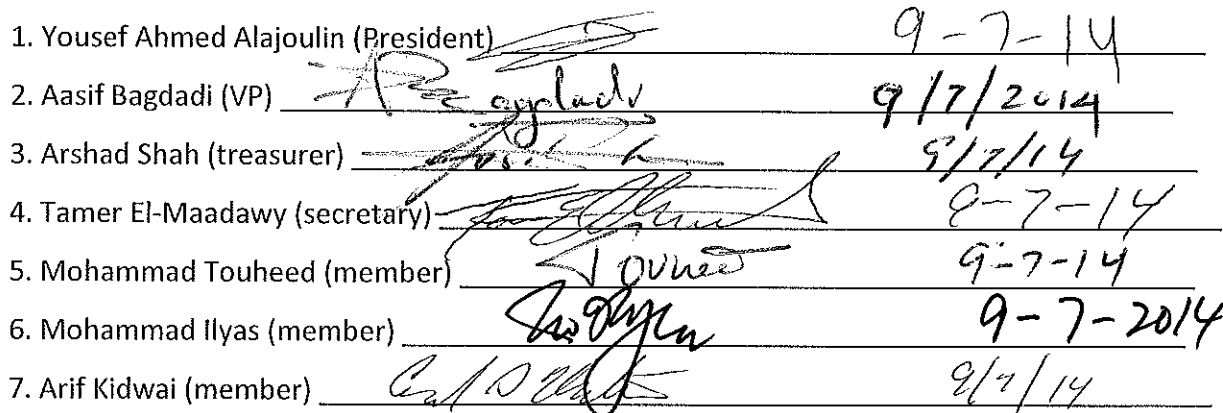 1. Yousef Ahmed Alajoulin (President) 9-7-14
2. Aasif Bagdadi (VP) Bagdadi 9/7/2014
3. Arshad Shah (treasurer) 9/7/14
4. Tamer El-Maadawy (secretary) 9-7-14
5. Mohammad Touheed (member) Touheed 9-7-14
6. Mohammad Ilyas (member) 9-7-2014
7. Arif Kidwai (member) 9/7/14